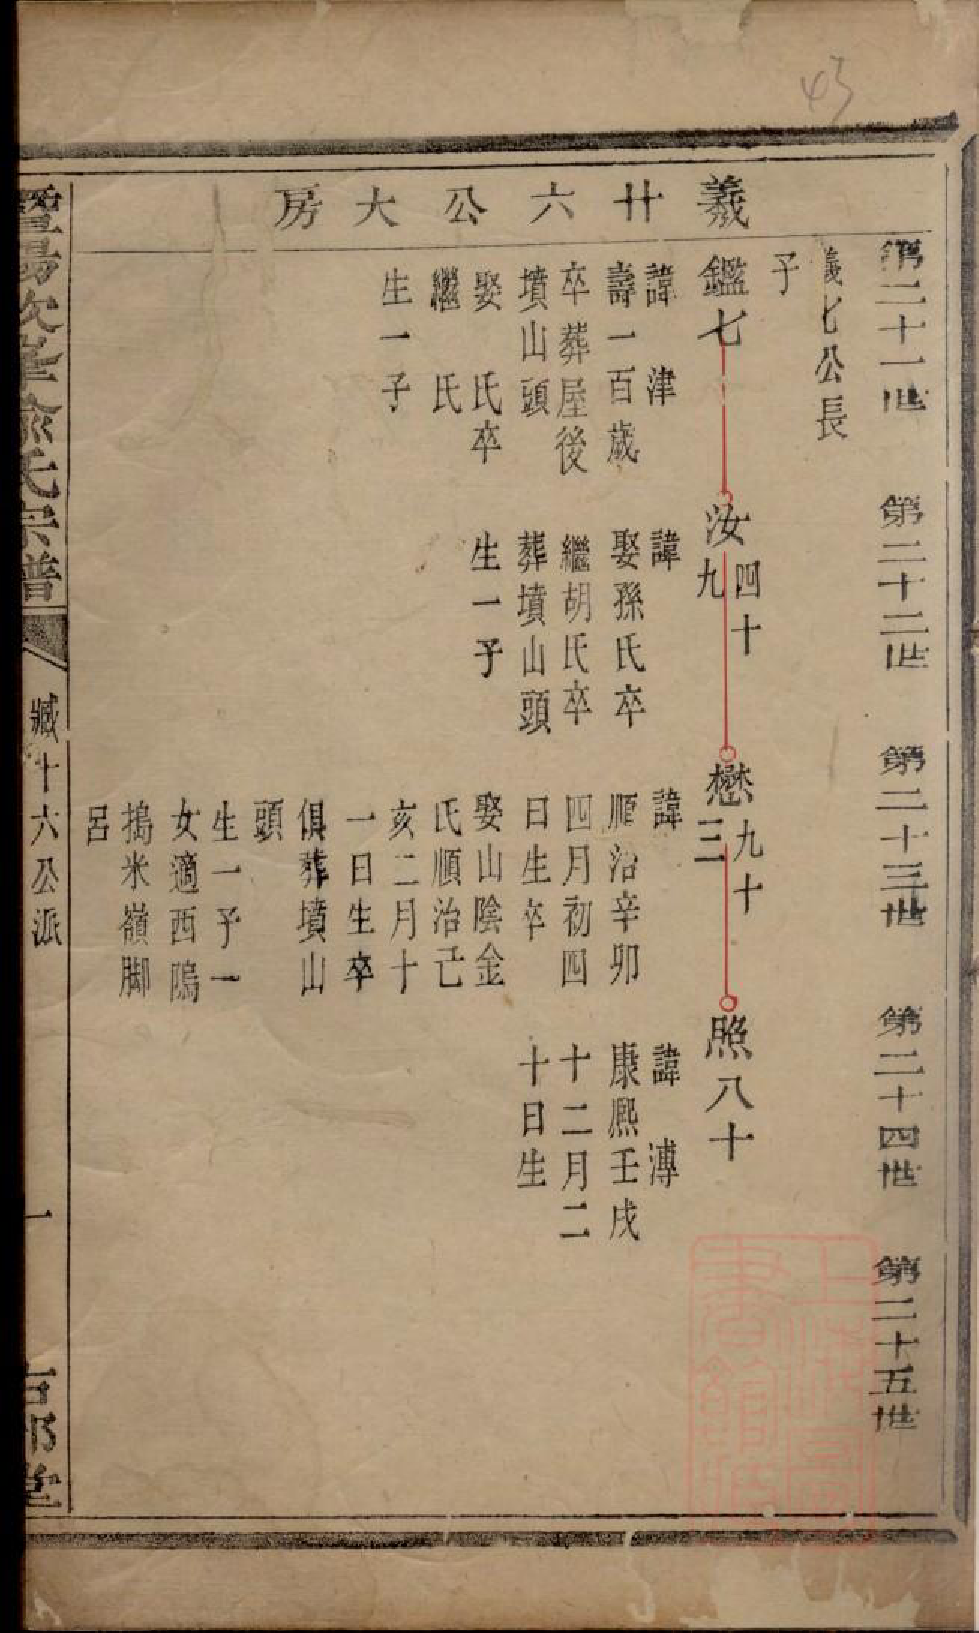 43
第二十一世
第二十二世
第二十三世
第二十四世
第二十五世
義七公長
子
義廿六公大房
鑑七
諱津
壽一百歲
卒葬屋後
墳山頭
娶 氏卒
繼 氏
生一子
汝四十九
諱
娶孫氏卒
繼胡氏卒
葬墳山頭
生一子
懋九十三
諱
順治辛卯
四月初四
日生卒
娶山陰金
氏順治己
亥二月十
一日生卒
俱葬墳山
頭
生一子一
女適西隖
搗米嶺脚
呂
照八十
諱溥
康熙壬戌
十二月二
十日生
暨陽次峯俞氏宗譜
臧十六公派
一
堂
上海圖書館藏